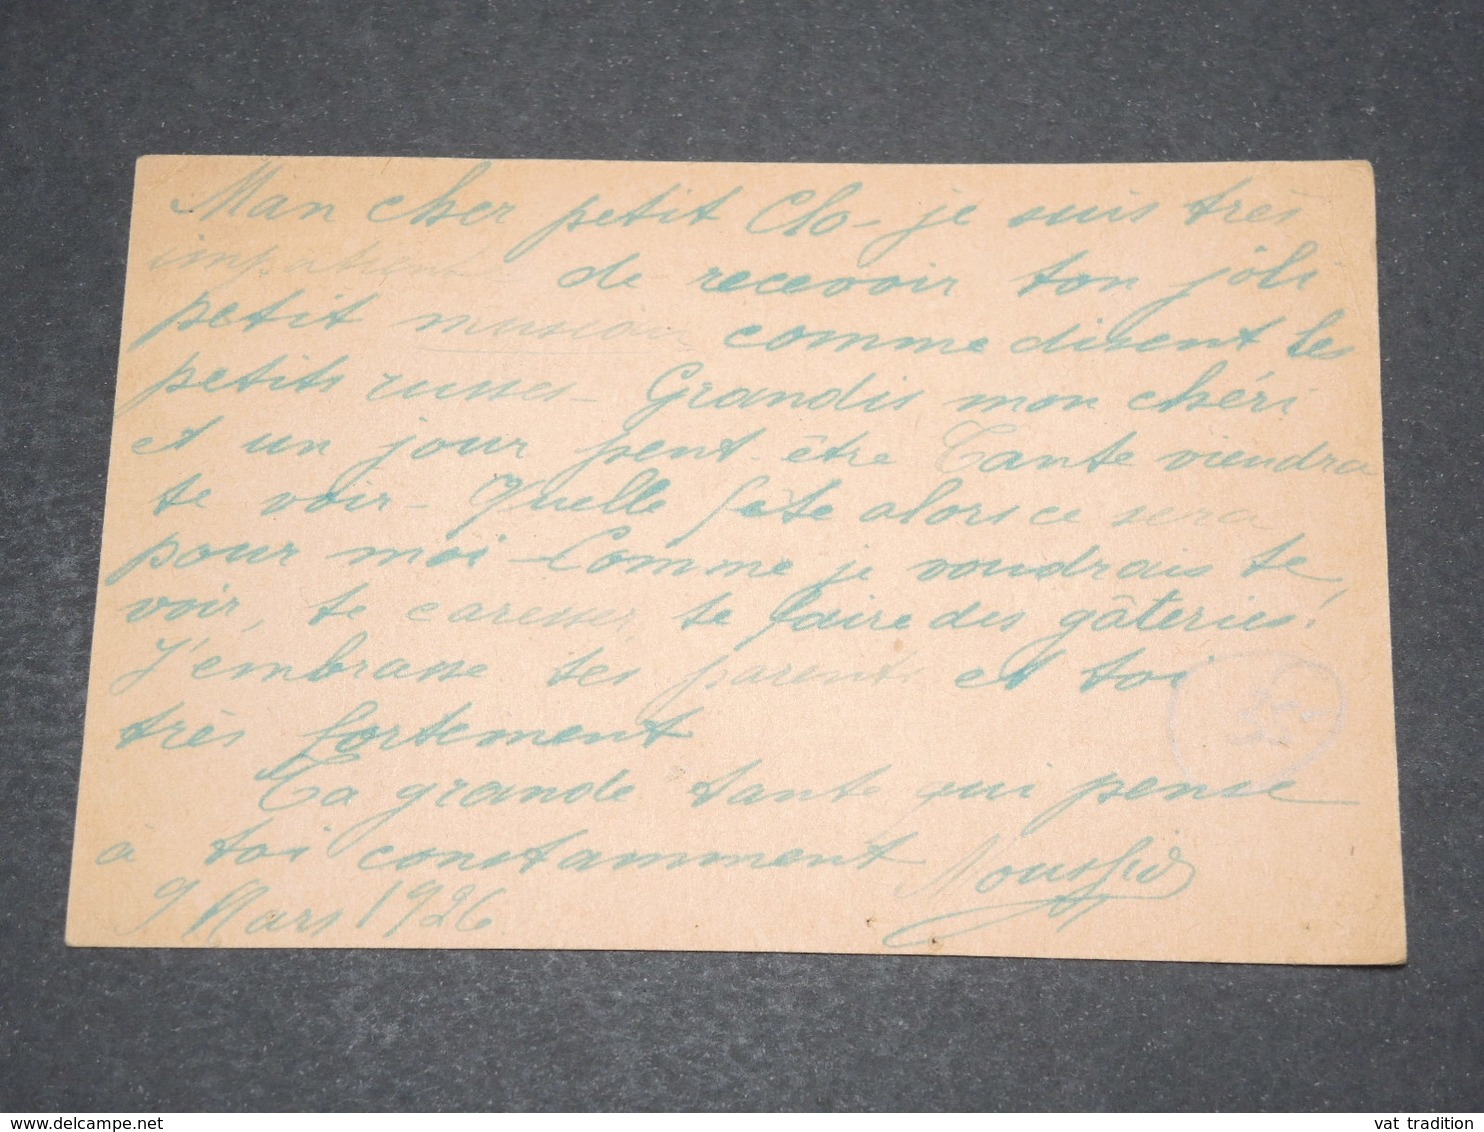 Mon cher petit Clo - je suis très
impatiente de recevoir ton joli
petit museau comme disent les
petits russes - Grandis mon chéri
et un jour peut-être Tante viendra
te voir - Quelle fête alors ce sera
pour moi - Comme je voudrais te
voir, te caresser te faire des gâteries!
J'embrasse tes parents et toi
très fortement
Ta grande tante qui pense
a toi constamment
9 Mars 1926
vat tradition
www.delcampe.net